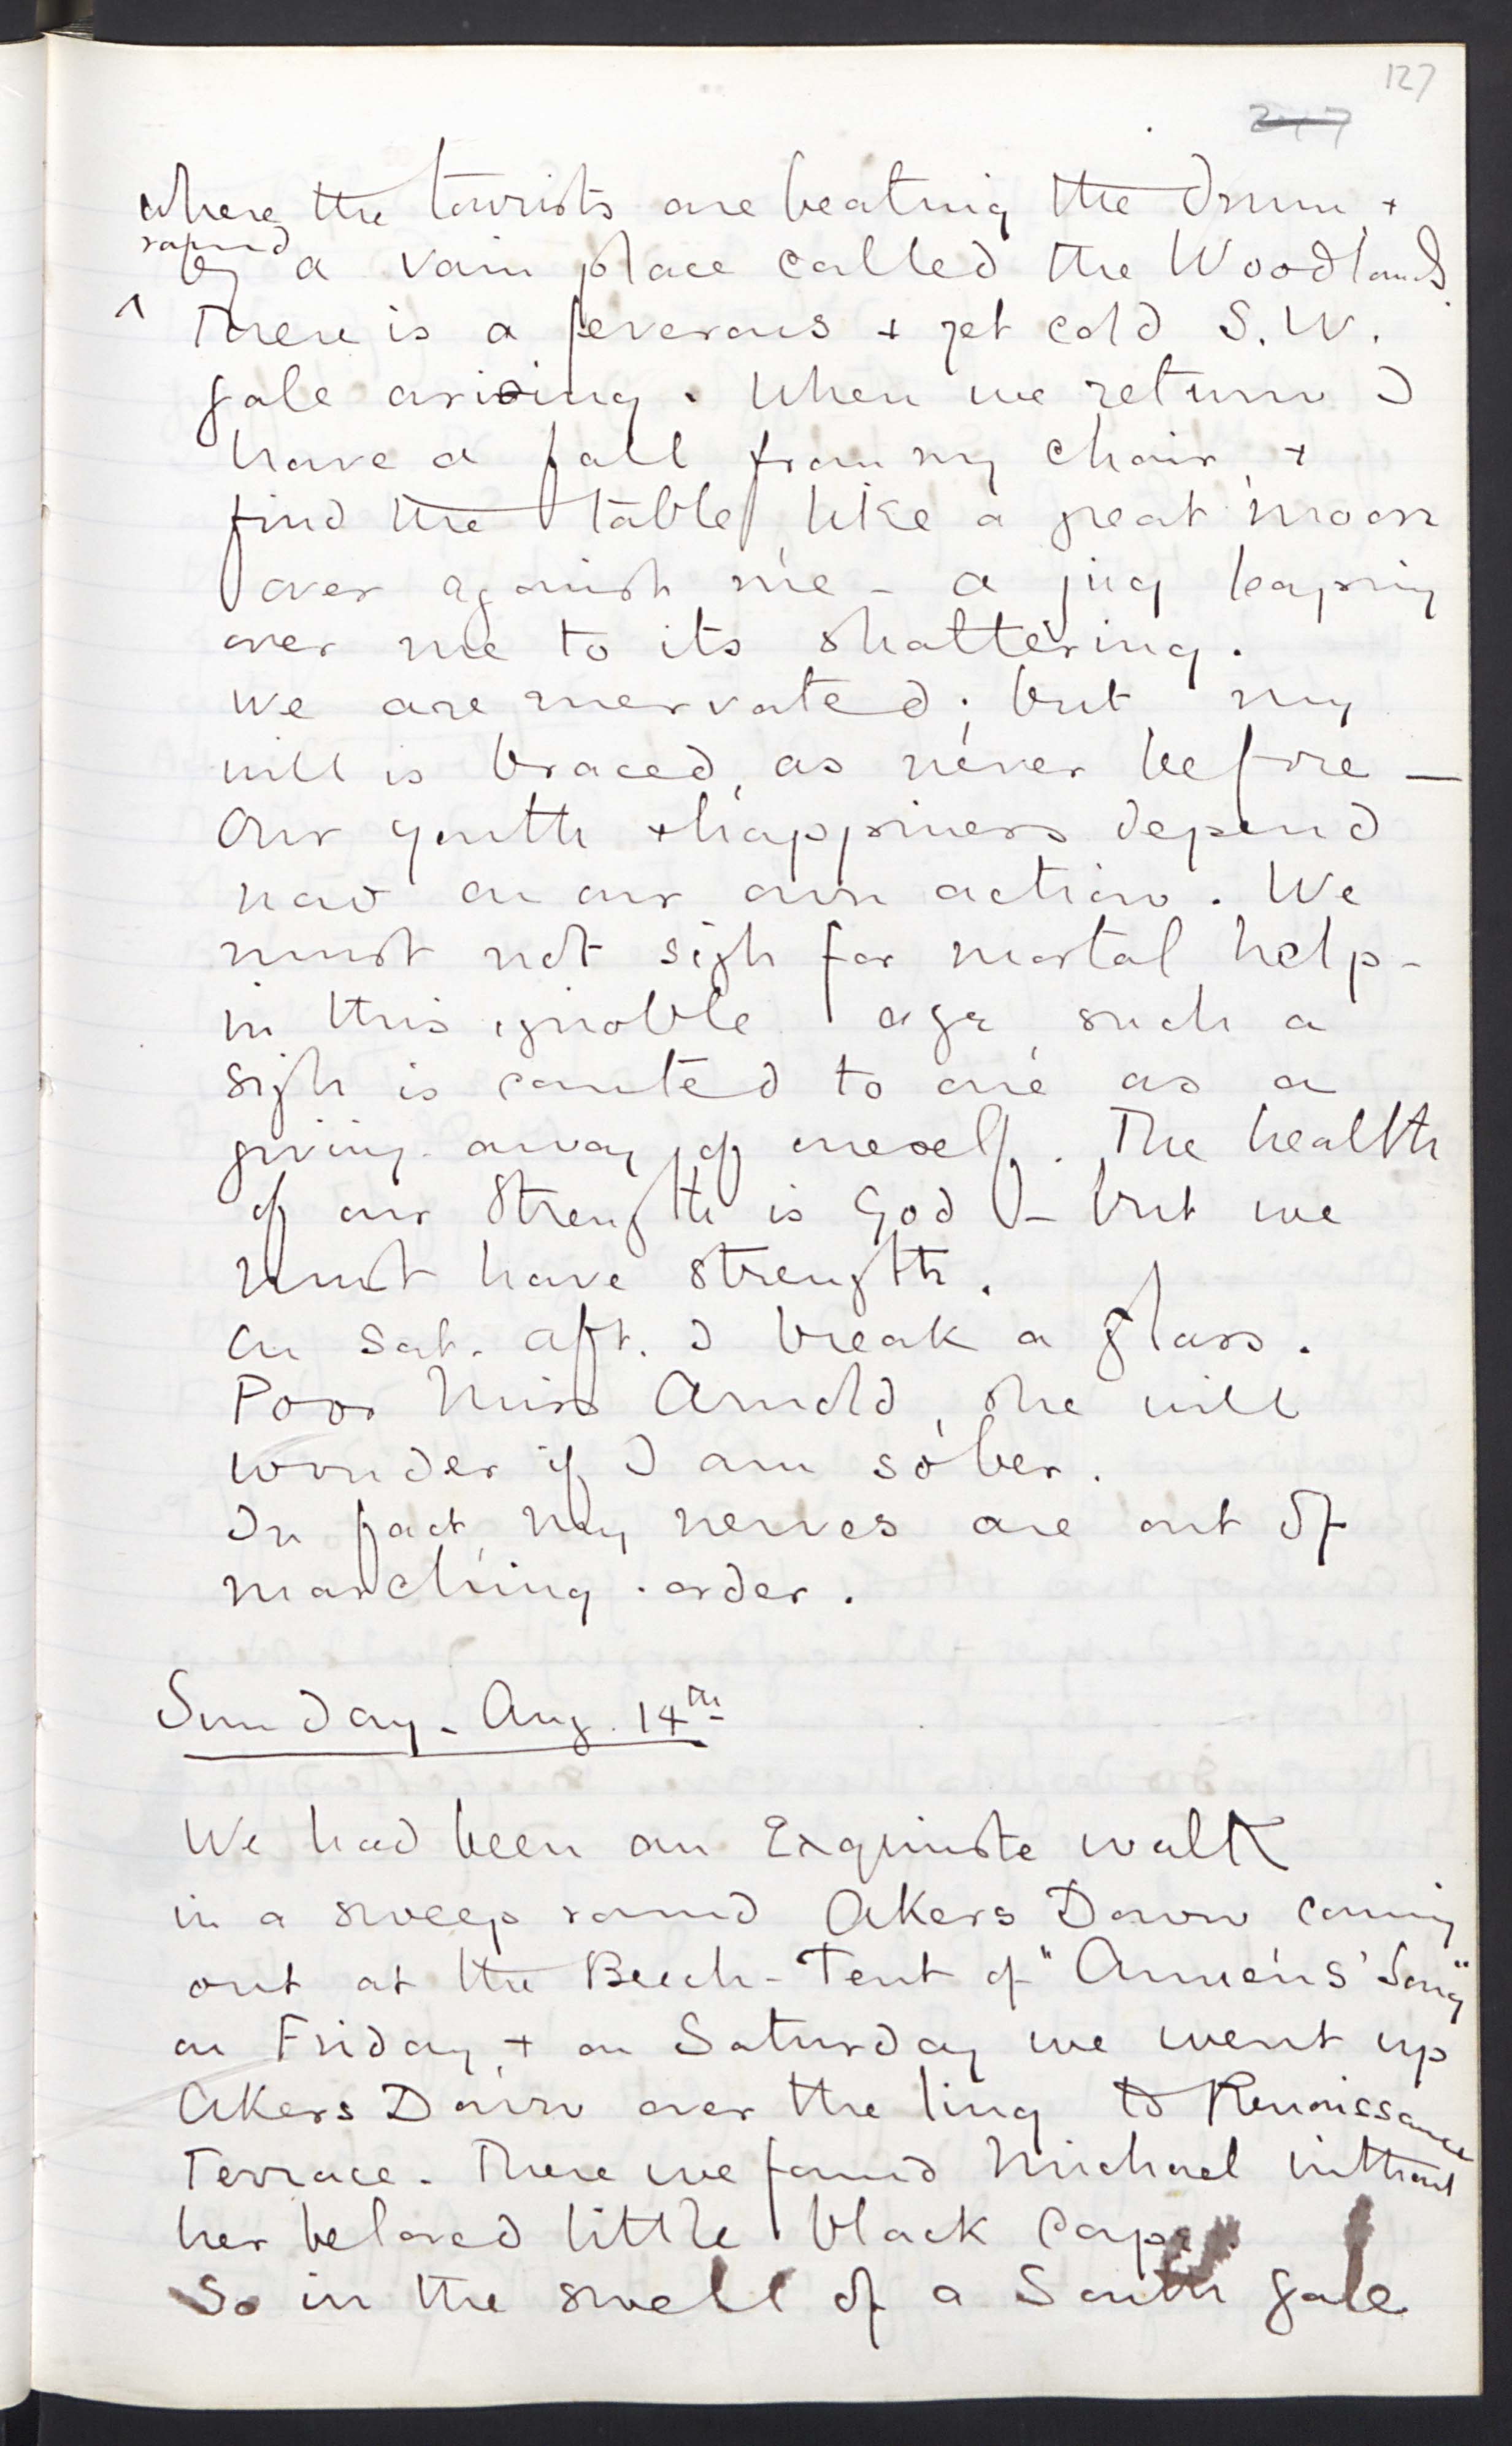 127
247
where the tourists are beating the drum, +
round
by a vain place called the Woodlands.
^ There is a feverous + yet cold S.W.
gale arising. When we return I
have a fall from my chair, +
find the table like a great moon
over against me - a jug leaping
over me to its shattering.
We are enervated; but my
will is braced, as never before —
Our youth + happiness depend
now on our own action. We
must not sigh for mortal help -
in this ignoble age, such a
sigh is counted to one as a
giving away of oneself. The health
of our strength is God - but we
must have strength.
On Sat. aft. I break a glass.
Poor Miss Arnold, she will
wonder if I am sober.
In fact, my nerves are out of
marching-order.
Sunday - Aug. 14th
We had been an Exquisite walk
in a sweep round Akers Down coming
out at the Beech-Tent of "Amiens' Song"
on Friday, + on Saturday we went up
Akers Down over the ling to Renaissance
Terrace. There we found Michael without
her beloved little black cape.
So in the swell of a South gale